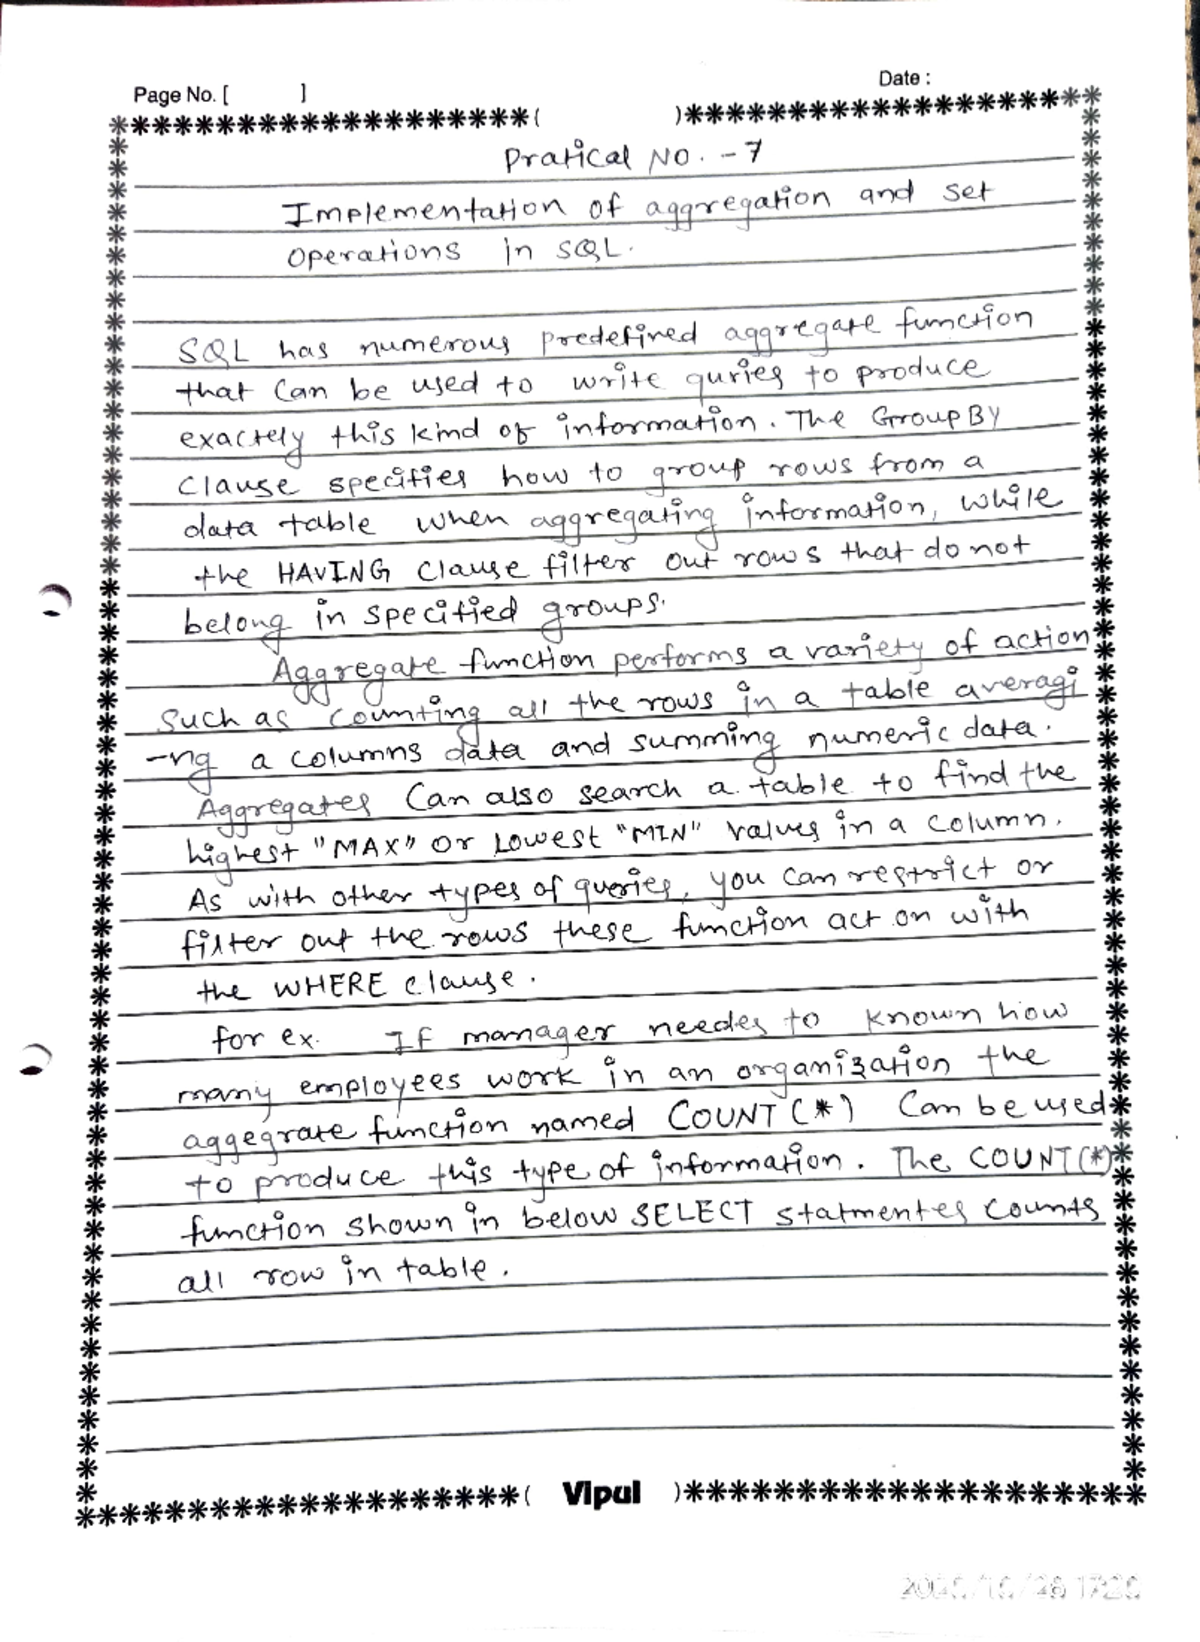 Page No. [ ]
Date :
Pratical NO. - 7
Implementation of aggregation and set
operations in SQL.
SQL has numerous predefined aggregate function
that can be used to write quries to produce
exactely this kind of information. The Group BY
clause specifies how to group rows from a
data table when aggregating information, while
the HAVING clause filter out rows that do not
belong in specified groups.
Aggregate function performs a variety of action
such as counting all the rows in a table averagi
-ng a columns data and summing numeric data.
Aggregates can also search a table to find the
highest "MAX" or Lowest "MIN" values in a column.
As with other types of queries, you can restrict or
filter out the rows these function act on with
the WHERE clause.
for ex. If manager needes to known how
many employees work in an organization the
aggegrate function named COUNT (*) can be used
to produce this type of information. The COUNT(*)
function shown in below SELECT statmentes counts
all row in table.
Vipul